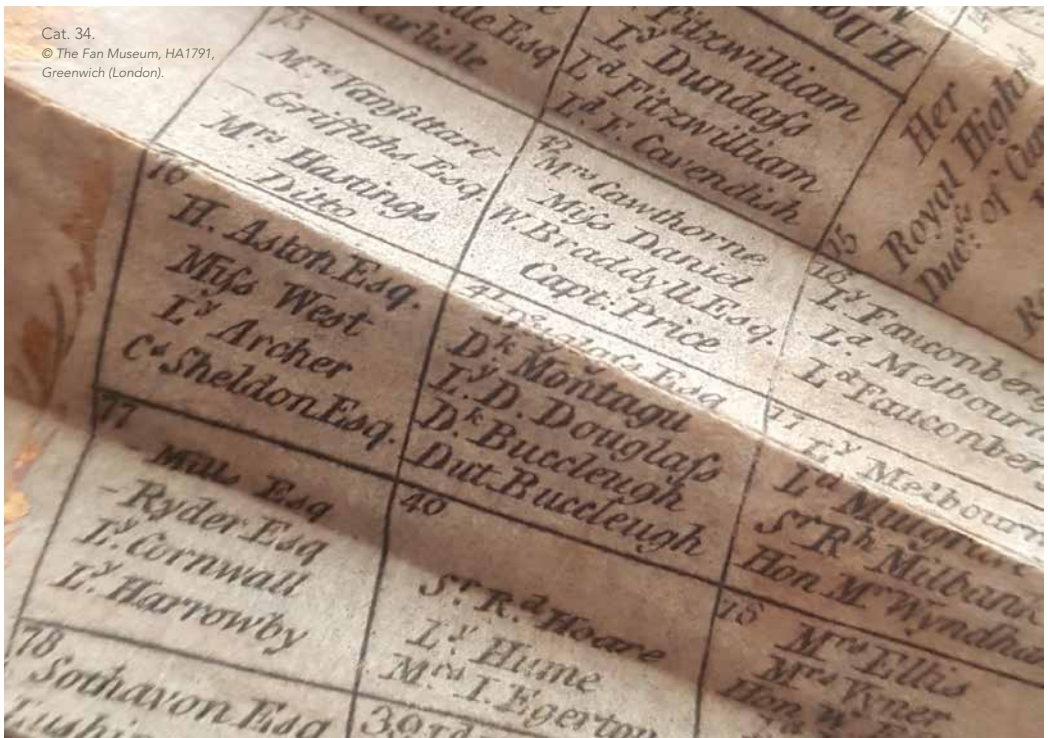 Cat. 34.
© The Fan Museum, HA1791,
Greenwich (London).
Esq
Carlisle
75
Mrs Vansittart
- Griffiths Esq.
Mrs Hastings
Ditto
76
H. Aston Esq.
Miſs West
Ly Archer
Cs Sheldon Esq.
77
Mills Esq
- Ryder Esq
Ly. Cornwall
Ly. Harrowby
78
Sothavon Esq
Fitzwilliam
Ly Dundaſs
Ld Fitzwilliam
Ld F. Cavendish
42
Mrs Cawthorne
Miſs Daniel
W. Braddyll Esq.
Capt: Price
41
Esq
Dk Montagu
Ly. D. Douglaſs
Dk Buccleugh
Dut. Buccleugh
40
Sr. Rd Hoare
Ly Hume
Mrs I. Egerton
39
Her
Royal High
Ducſs of
15
16
Ly Fauconberg
Ld. Melbourn
Ld Fauconberg
17
Ly Melbourn
Ld Mulgra
Sr Rh Milban
Hon Mr Wyndha
18
Mrs Ellis
Mrs Vyner
Hon. W.